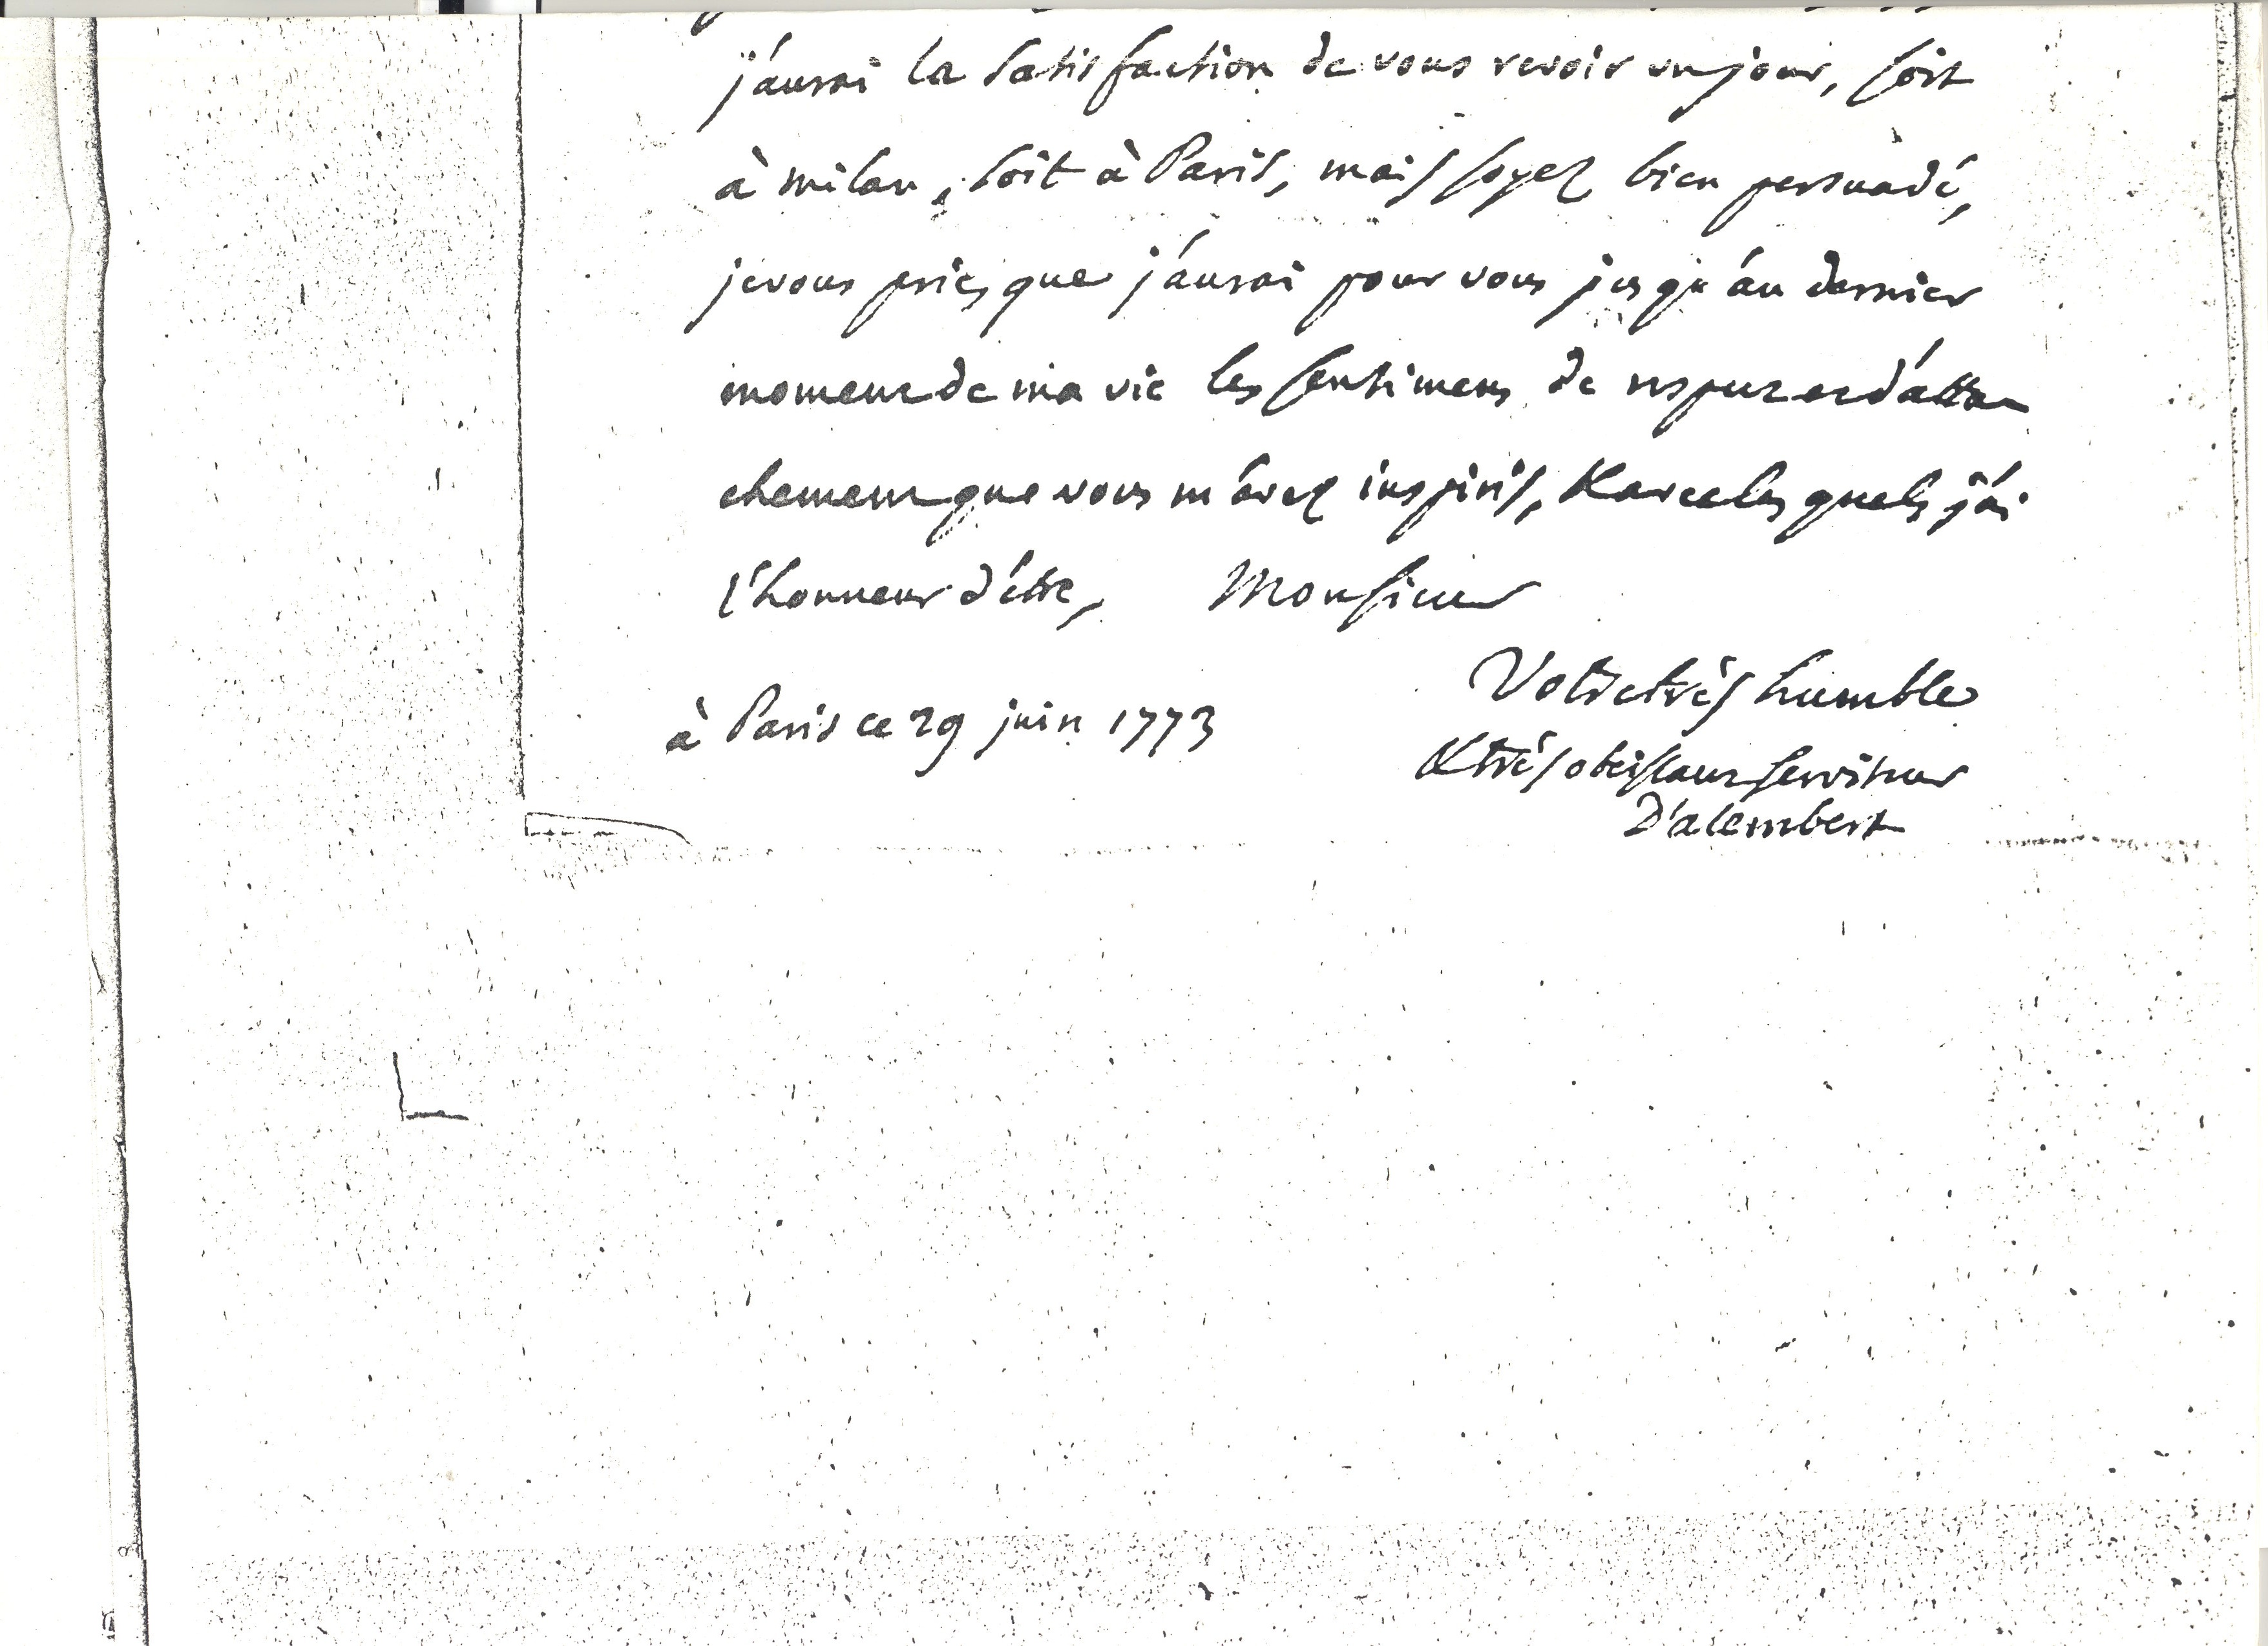 j'aurai la satisfaction de vous revoir un jour, soit
à milan, soit à Paris, mais soyez bien persuadé,
je vous prie, que j'aurai pour vous jusqu'au dernier
moment de ma vie les sentimens de respect et d'atta
chement que vous m'avez inspirés, & avec lesquels j'ai
l'honneur d'être, Monsieur
Votre très humble
& très obeissant serviteur
à Paris ce 29 juin 1773
D'alembert